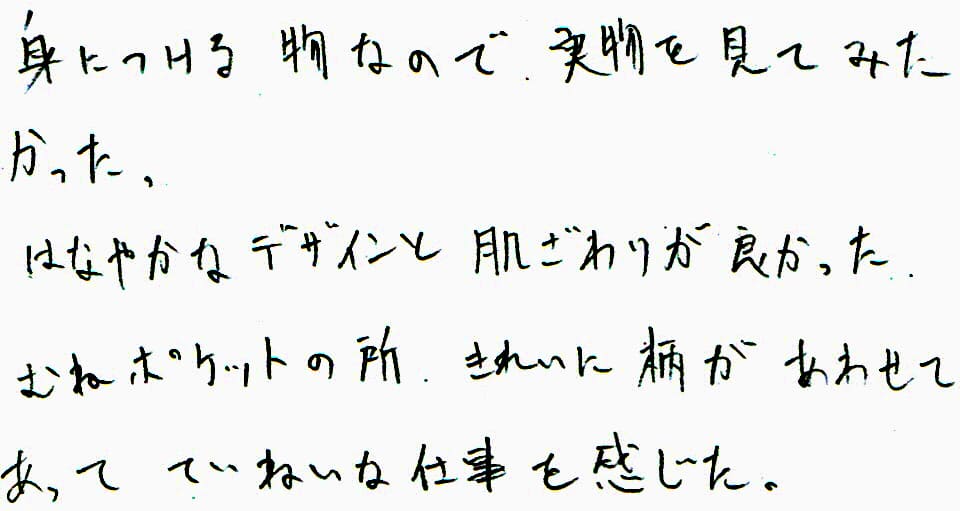 身につける物なので、実物を見てみた
かった、
はなやかなデザインと肌ざわりが良かった.
むねポケットの所、きれいに柄があわせて
あって ていねいな仕事を感じた。